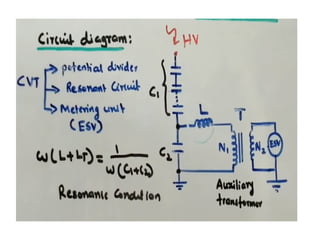 Circuit diagram:
HV
CVT
potential divider
Resonant Circuit
Metering unit
(ESV)
C1
L
T
C2
N1
N2
ESV
ω(L+LT)= 1
ω(C1+C2)
Resonance Condition
Auxiliary
transformer